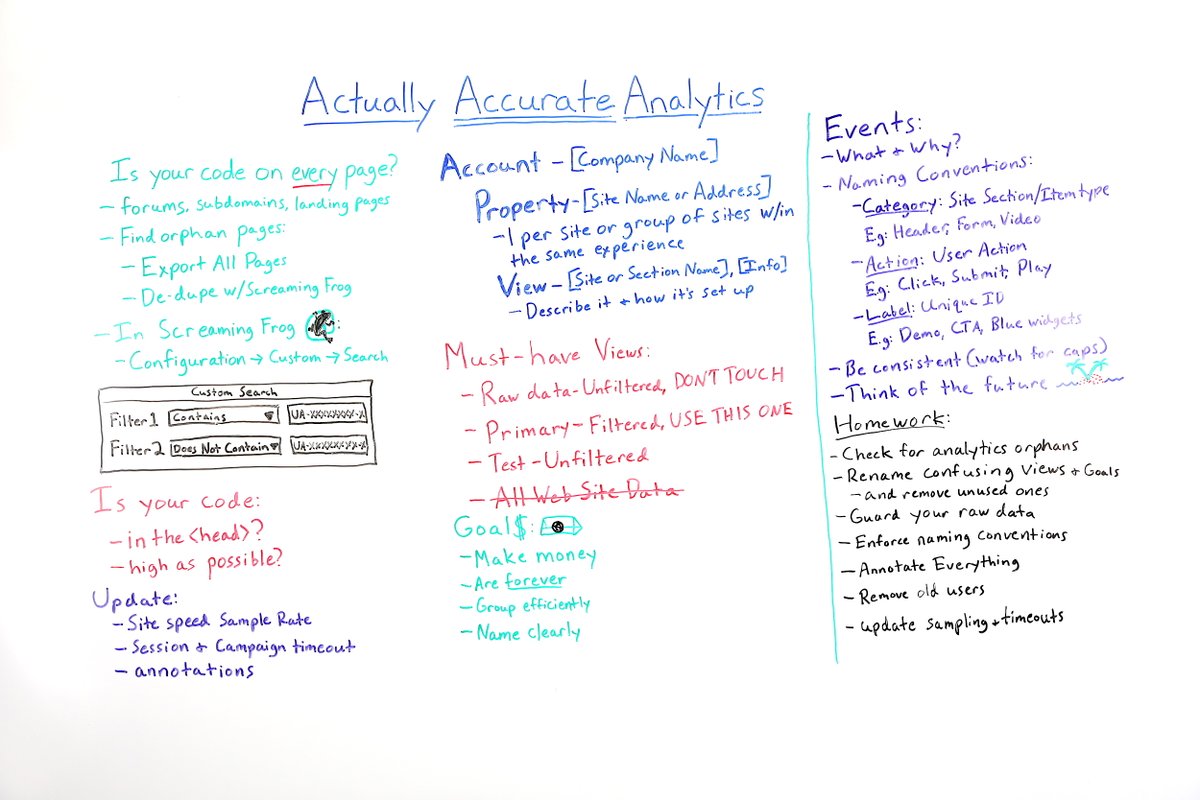 Actually Accurate Analytics
Is your code on every page?
- forums, subdomains, landing pages
- Find orphan pages:
- Export All Pages
- De-dupe w/Screaming Frog
- In Screaming Frog :
- Configuration → Custom → Search
Custom Search
Filter 1 Contains ▼ UA-xxxxxxxx-x
Filter 2 Does Not Contain ▼ UA-xxxxxxxx-x
Is your code:
- in the <head>?
- high as possible?
Update:
- Site speed Sample Rate
- Session + Campaign timeout
- annotations
Account - [Company Name]
Property - [Site Name or Address]
- 1 per site or group of sites w/in
the same experience
View - [Site or Section Name], [Info]
- Describe it + how it's set up
Must-have Views:
- Raw data - Unfiltered, DON'T TOUCH
- Primary - Filtered, USE THIS ONE
- Test - Unfiltered
- All Web Site Data
Goal$:
- Make money
- Are forever
- Group efficiently
- Name clearly
Events:
- What + Why?
- Naming Conventions:
- Category: Site Section/Item type
E.g: Header, Form, Video
- Action: User Action
E.g: Click, Submit, Play
- Label: Unique ID
E.g: Demo, CTA, Blue widgets
- Be consistent (watch for caps)
- Think of the future
Homework:
- Check for analytics orphans
- Rename confusing Views + Goals
- and remove unused ones
- Guard your raw data
- Enforce naming conventions
- Annotate Everything
- Remove old users
- update sampling + timeouts